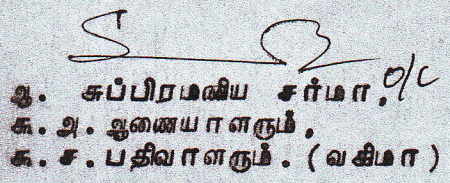 O/C
ஆ. சுப்பிரமணிய சர்மா.
கூ.அ.ஆணையாளரும்.
கூ.ச.பதிவாளரும்.(வகிமா)